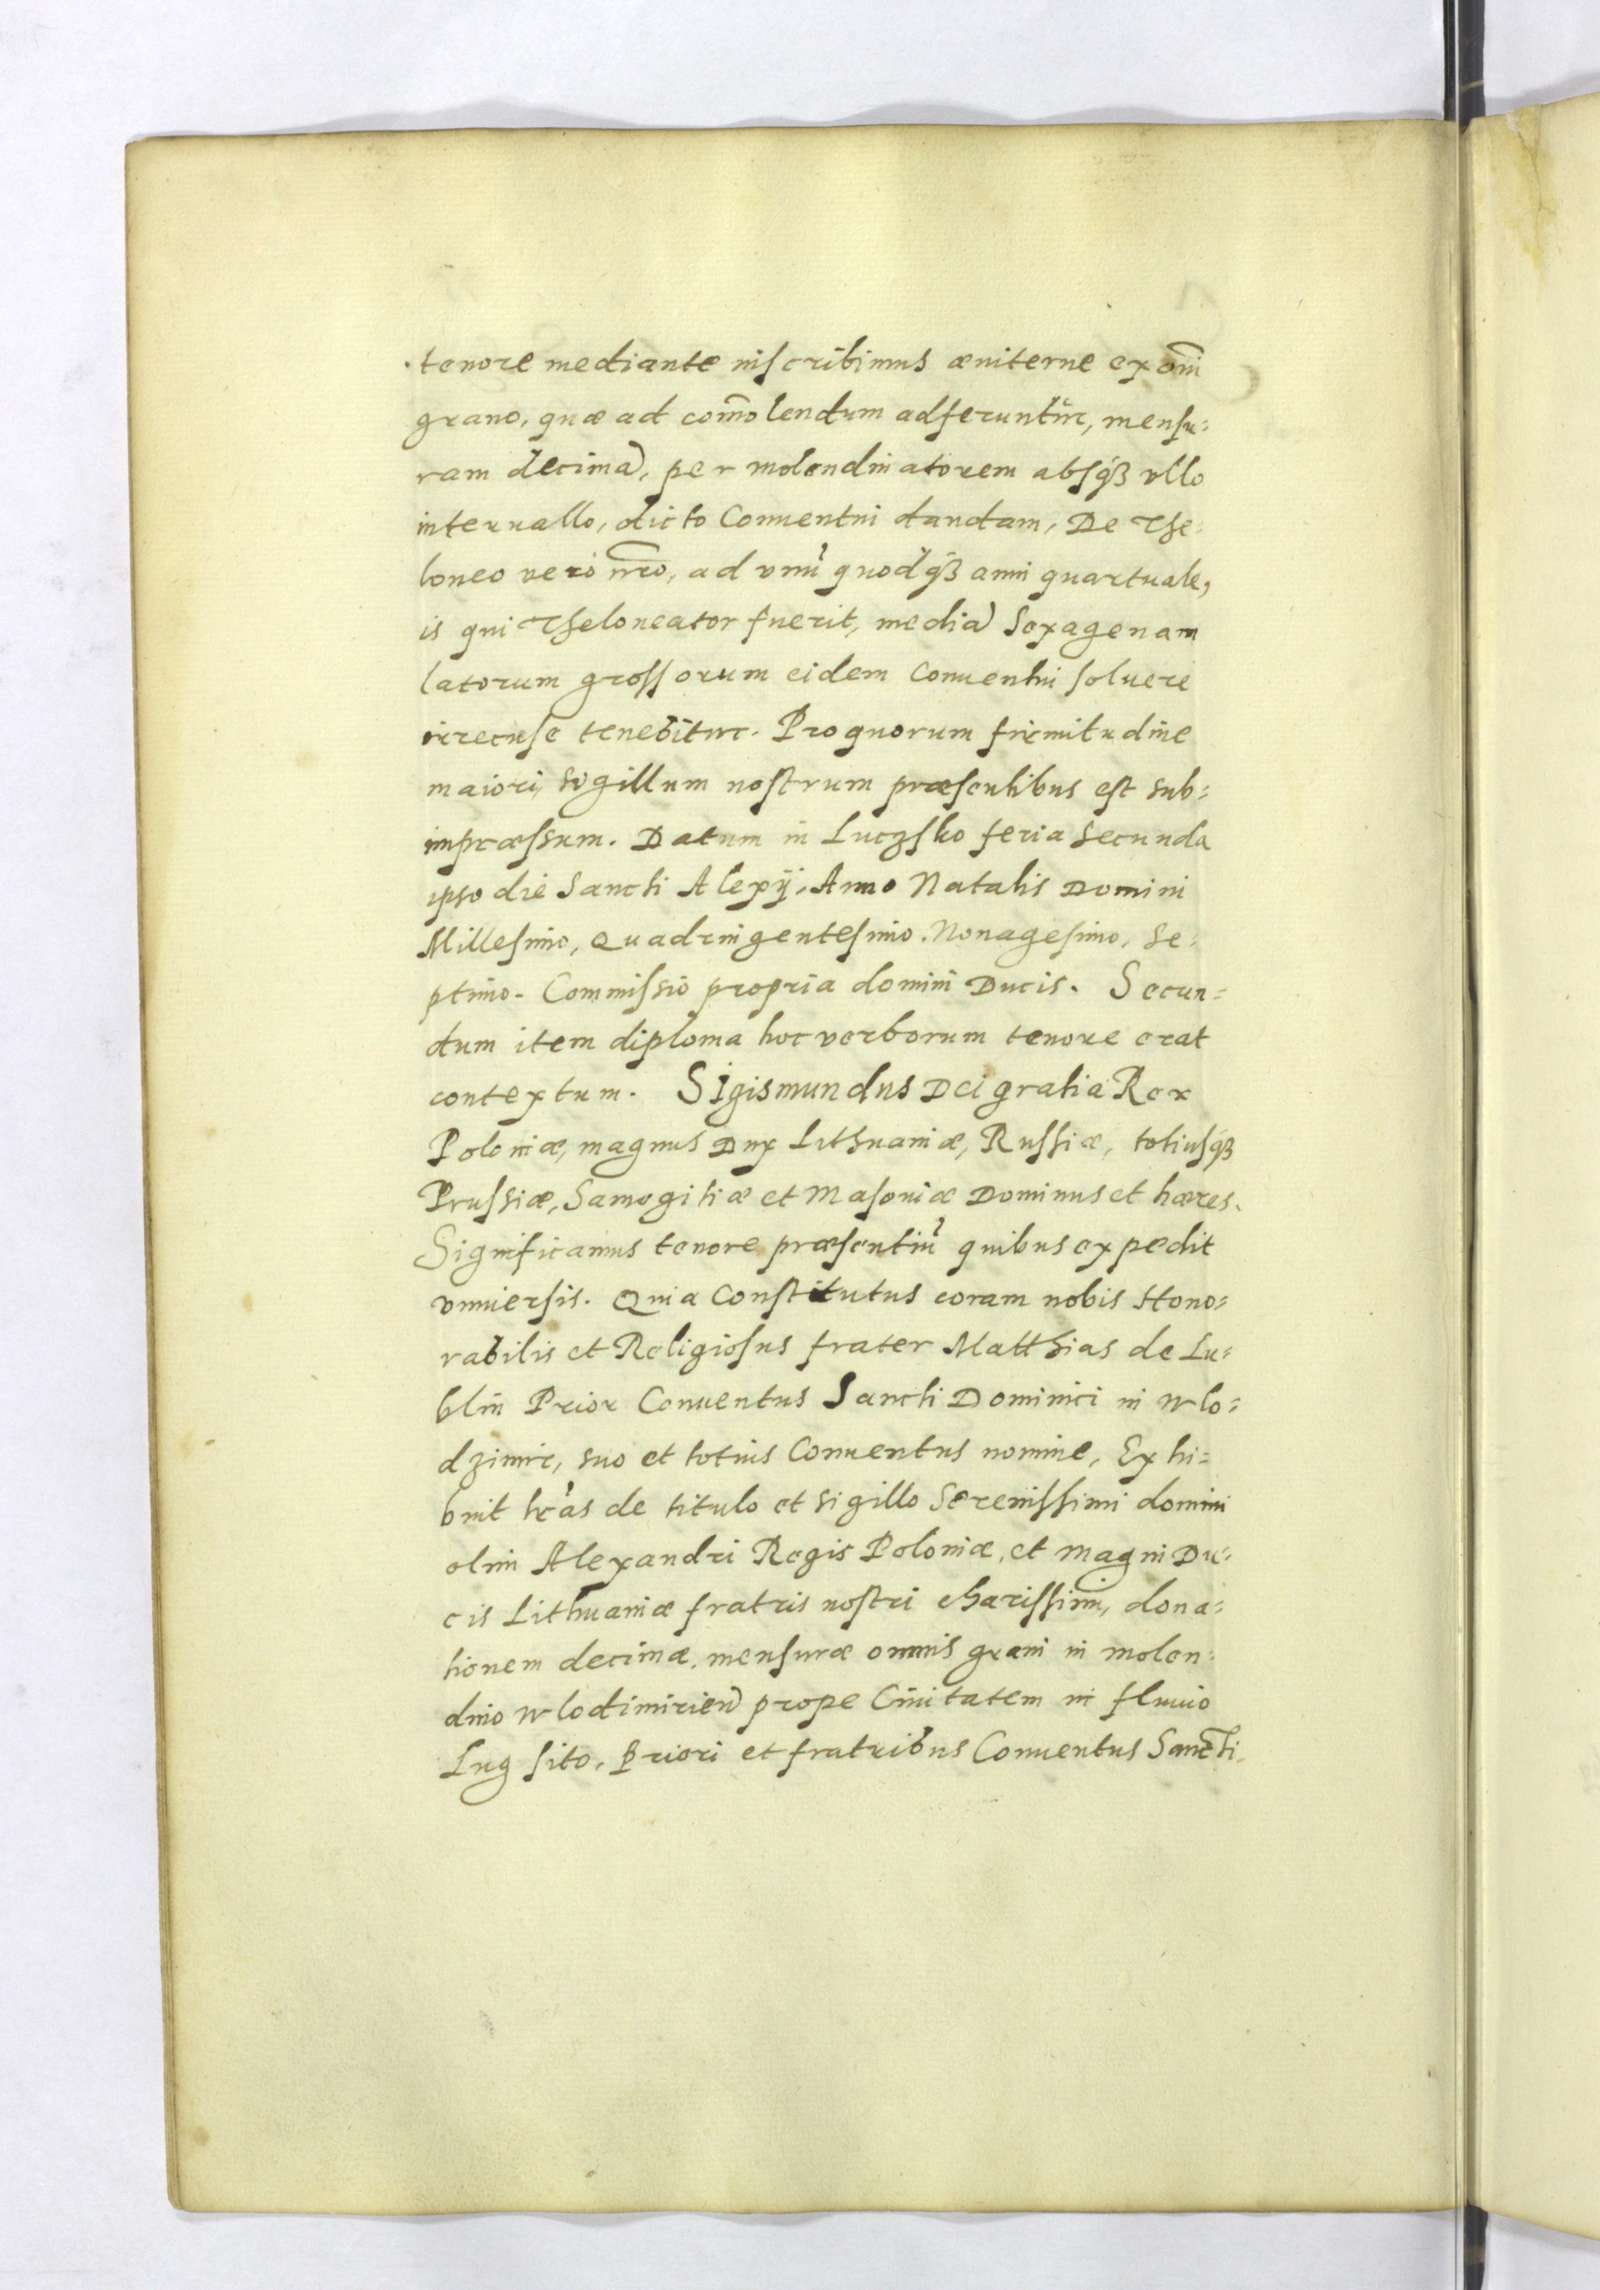 tenore mediante inscribimus æuiterne ex om̃i
grano, quæ ad com̃olendum adferuntur, mensu=
ram decimã, per molendinatorem absq́ꝫ vllo
interuallo, dicto Conuentui dandam, De The=
loneo vero nr̃o, ad vnũ quodq́ꝫ anni quartuale,
is qui Theloneator fuerit, mediã Sexagenam
latorum grossorum eidem Conuentui soluere
irrecuse tenebitur. Pro quorum firmitudine
maiori, sigillum nostrum præsentibus est sub=
impræssum. Datum in Luczsko feria secunda
ipso die Sancti Alexij, Anno Natalis Domini
Millesimo, Quadringentesimo. Nonagesimo, Se=
ptimo. Commissio propria domini Ducis. Secun=
dum item diploma hoc verborum tenore erat
contextum. Sigismundus Dei gratia Rex
Poloniæ, magnus Dux Lithuaniæ, Russiæ, totiusq́ꝫ
Prussiæ, Samogitiæ et Masouiæ Dominus et hæres.
Significamus tenore præsentiũ quibus expedit
vniuersis. Quia Constitutus coram nobis Hono=
rabilis et Religiosus frater Matthias de Lu=
blin Prior Conuentus Sancti Dominici in Wlo=
dzimir, suo et totius Conuentus nomine, Exhi=
buit lr̃as de titulo et sigillo Serenissimi domini
olim Alexandri Regis Poloniæ, et Magni Du=
cis Lithuaniæ fratris nostri charissimi, dona=
tionem decimæ mensuræ omnis grani in molen=
dino Wlodimirien̄ prope Ciuitatem in fluuio
Lug sito, Priori et fratribus Conuentus Sancti